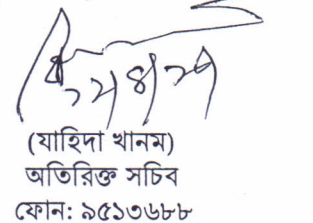 (যাহিদা খানম)
অতিরিক্ত সচিব
ফোন: ৯৫১৩৬৮৮